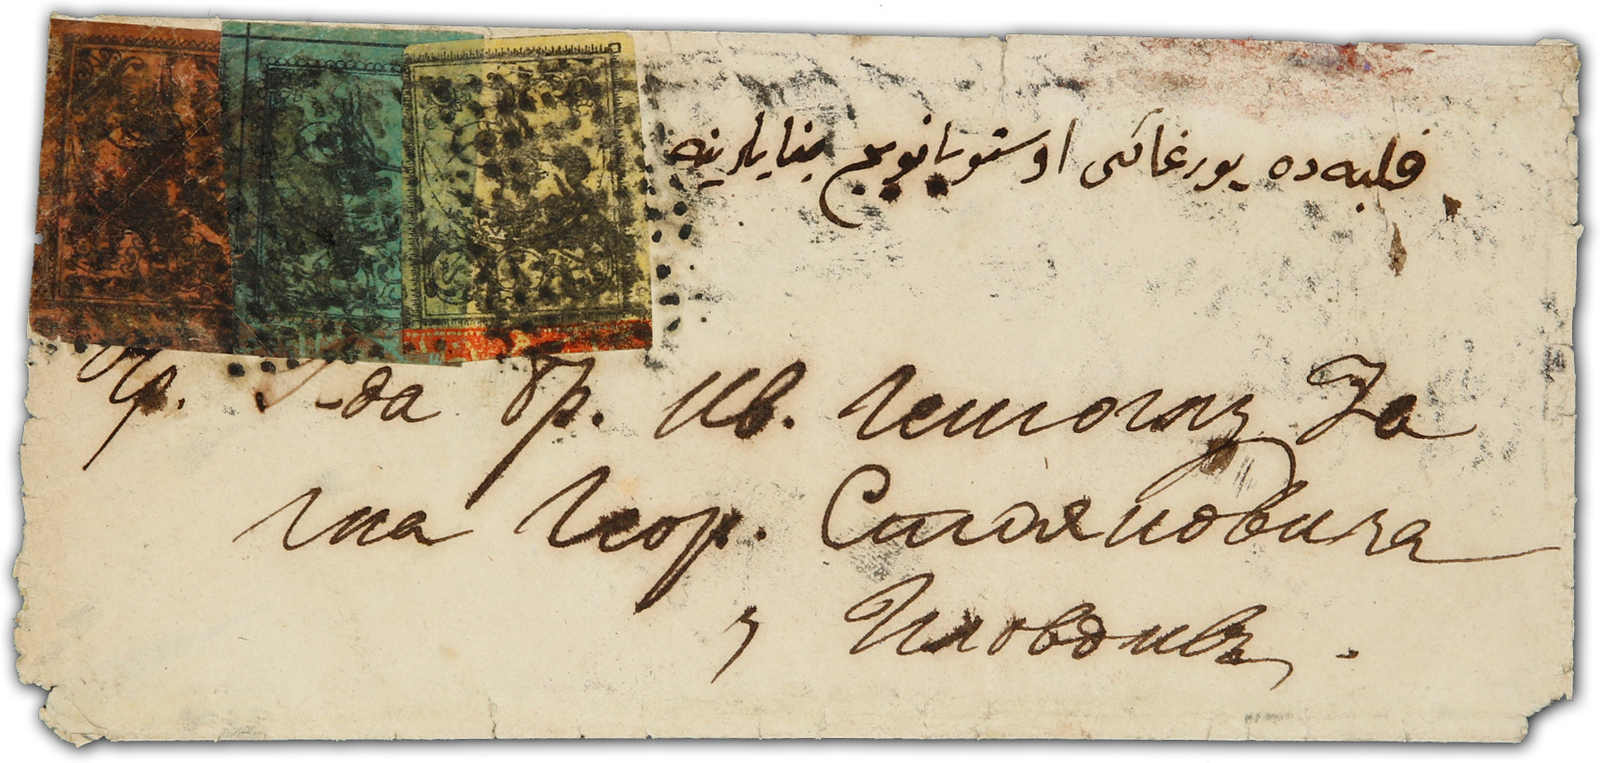 فلبه ده يورغاكى اوستويانويچ جنابلرينه
Гр. Г-да бр. Ив. Гешоглу За
гна Геор. Стояновича
у Пловдивъ.